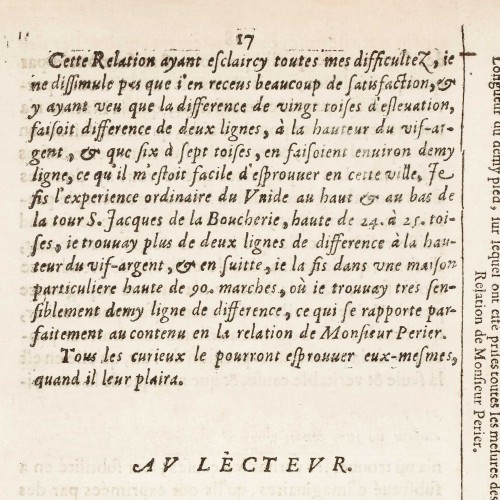 17
Cette Relation ayant esclaircy toutes mes difficultez, ie
ne dissimule pas que i'en receus beaucoup de satisfaction, &
y ayant veu que la difference de vingt toises d'esleuation,
faisoit difference de deux lignes, à la hauteur du vif-ar-
gent, & que six à sept toises, en faisoient enuiron demy
ligne, ce qu'il m'estoit facile d'esprouuer en cette ville, Je
fis l'experience ordinaire du Vuide au haut & au bas de
la tour S. Jacques de la Boucherie, haute de 24. à 25. toi-
ses, ie trouuay plus de deux lignes de difference à la hau-
teur du vif-argent, & en suitte, ie la fis dans une maison
particuliere haute de 90. marches, où ie trouuay tres sen-
siblement demy ligne de difference, ce qui se rapporte par-
faitement au contenu en la relation de Monsieur Perier.
Tous les curieux le pourront esprouuer eux-mesmes,
quand il leur plaira.
AV LECTEVR.
Longueur demy pied, sur lequel ont esté prises toutes les mesures de
Relation de Monsieur Perier.